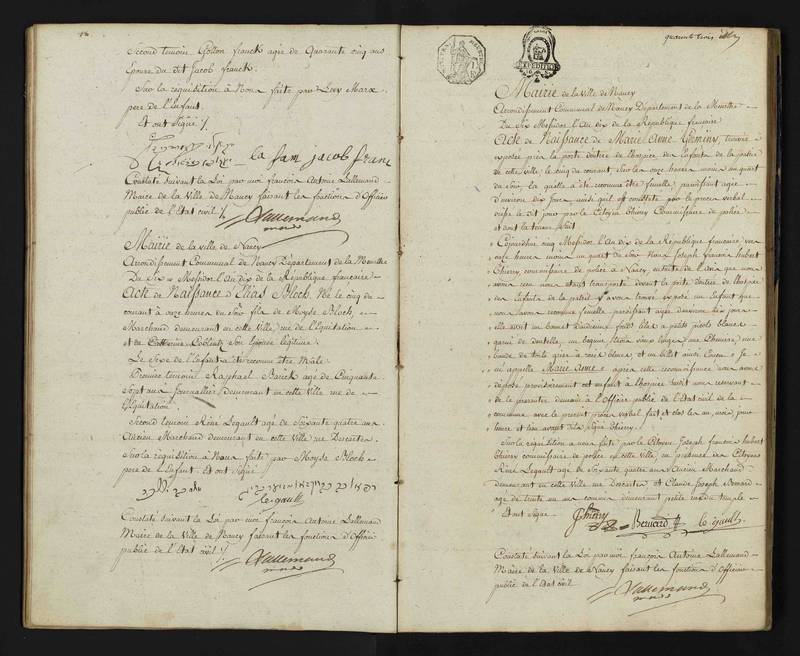 Second temoin Gotton franck agée de Quarante cinq ans
Epouse du dit Jacob franck.
Sur la requisition à Nous faite par Levy Marx
pere de l'Enfant.
Et ont Signé /.
la fam jacob franc
Constaté suivant la Loi par moi françois Antoine Lallemand
Maire de la Ville de Nancy faisant les fonctions d'Officier
public de l'Etat civil /.
Lallemand
Maire
Mairie de la ville de Nancy
Arrondissement Communal de Nancy Département de la Meurthe
Du Six Messidor l'An dix de la République française
Acte de Naissance d'Elias Bloch, Né le cinq du
courant à onze heures du Soir fils de Moyse Bloch,
Marchand demeurant en cette Ville, rue de l'Equitation
et de Catherine Coblentz Son Epouse légitime.
Le Sexe de l'Enfant a été reconnu être Male.
Premier temoin Raphael agé de Cinquante
Sept ans Journallier, demeurant en cette Ville rue de
l'Equitation.
Second temoin René Legault agé de Soixante quatre ans
Ancien Marchand demeurant en cette Ville rue Descartes.
Sur la réquisition à Nous faite par Moyse Bloch
pere de l'Enfant. Et ont Signé
le gault
Constaté suivant la Loi par moi françois Antoine Lallemand
Maire de la Ville de Nancy faisant les fonctions d'Officier
public de l'Etat civil /.
Lallemand
Maire
quarante trois
Mairie de la ville de Nancy
Arrondissement Communal de Nancy Département de la Meurthe
Du Six Messidor l'An dix de la République française
Acte de Naissance de Marie Anne trouvée
exposée près la porte d'entrée de l'hospice des Enfants de la patrie
de cette ville, le cinq du courant Sur les onze heures moins un quart
du Soir, la quelle a été reconnue être femelle, paraissant agée
d'environ dix jours ainsi qu'il est constaté par le procès verbal
du dit jour par le Citoyen thiery Commissaire de police
et dont la teneur Suit
Cejourdhui cinq Messidor l'An dix de la République française vers
onze heures moins un quart du Soir Nous Joseph françois hubert
thiery, commissaire de police à Nancy, de l'avis que nous
avons reçu nous étant transporté devant la porte d'entrée de l'hospice
des Enfants de la patrie y avons trouvé exposé un Enfant que
nous avons reconnu femelle paraissant agée d'environ dix jours
elle avoit un bonet d'indienne fond lilas a petits picots blancs
garni de dentelle, un beguin, une Chemise, une
bande de toile grise à raie bleues et un billet ainsi Conçu Je
m'appelle Marie Anne, après cette reconnaissance nous avons
déposé provisoirement cet enfant à l'hospice Susdit nous reservant
de la presenter demain à l'Officier public de l'Etat civil de la
commune avec le present procès verbal fait et clos les an, mois, jour
heure et lieu avant dits Signé thiery.
Sur la réquisition à nous faite par le Citoyen Joseph françois hubert
thiery commissaire de police en cette ville, en presence des Citoyens
René Legault agé de Soixante quatre ans Ancien Marchand
demeurant en cette Ville rue Descartes et Claude Joseph Bernard
agé de trente un ans demeurant petite rue du temple
Et ont Signé
Thiery Bernard le gault
Constaté suivant la Loi par moi françois Antoine Lallemand
Maire de la Ville de Nancy faisant les fonctions d'Officier
public de l'Etat civil
Lallemand
Maire